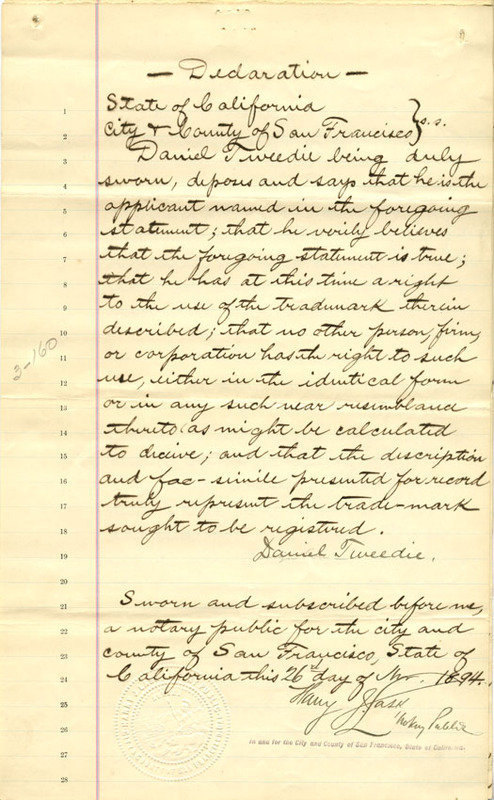 — Declaration —
State of California } s.s.
City & County of San Francisco
Daniel Tweedie being duly
sworn, deposes and says that he is the
applicant named in the foregoing
statement; that he verily believes
that the foregoing statement is true;
that he has at this time a right
to the use of the trademark therein
described; that no other person, firm,
or corporation has the right to such
use, either in the identical form
or in any such near resemblance
thereto as might be calculated
to deceive; and that the description
and fac-simile presented for record
truly represent the trade-mark
sought to be registered.
Daniel Tweedie.
Sworn and subscribed before me,
a notary public for the city and
county of San Francisco, State of
California this 26th day of Nov. 1894.
Harry J. Lask
Notary Public
In and for the City and County of San Francisco, State of California.
3-160
1
2
3
4
5
6
7
8
9
10
11
12
13
14
15
16
17
18
19
20
21
22
23
24
25
26
27
28